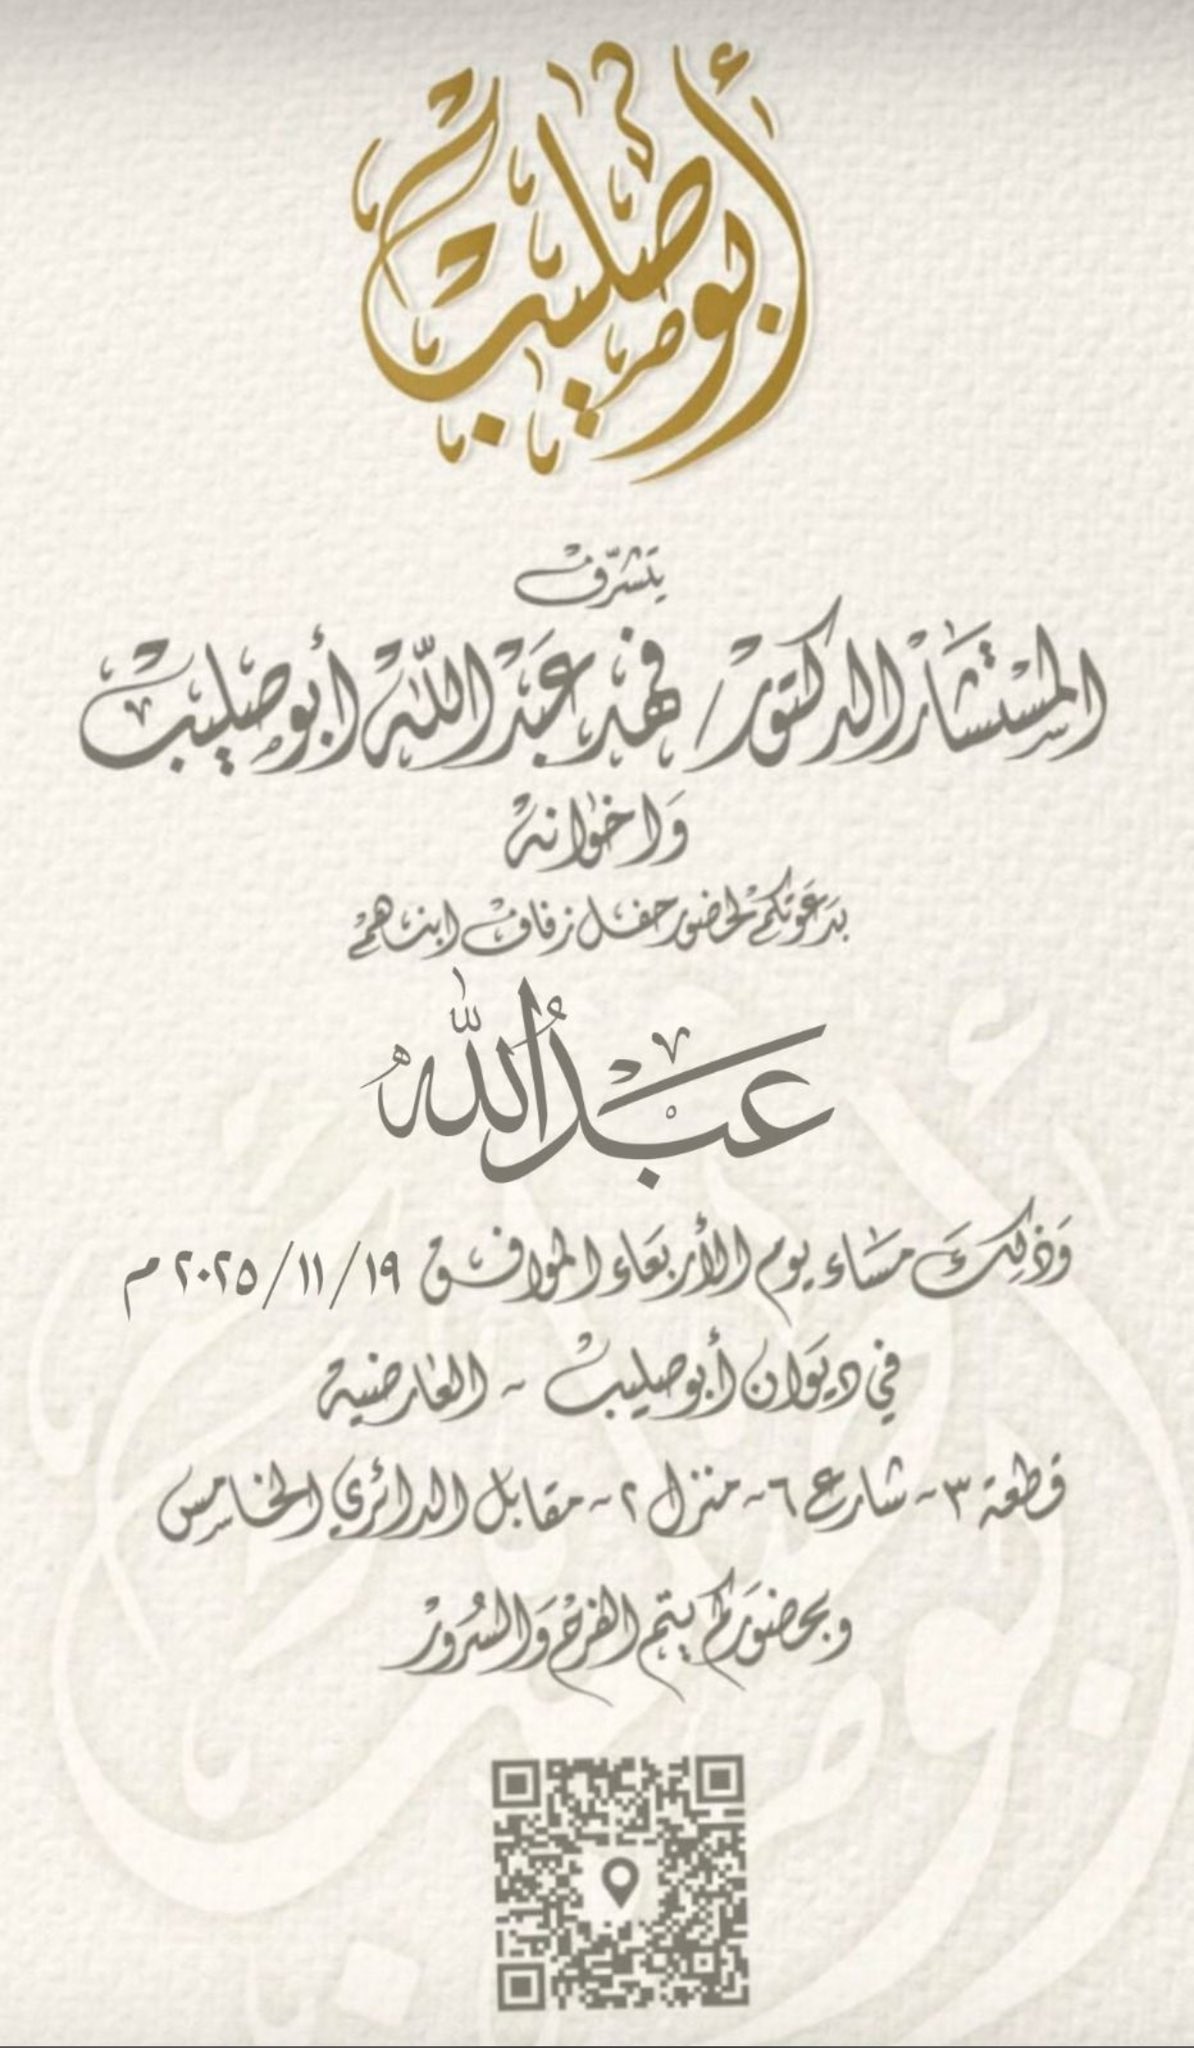 أبو صليب
يتشرف
المستشار الدكتور / فهد عبدالله أبو صليب
واخوانه
بدعوتكم لحضور حفل زفاف ابنهم
عبدالله
وذلك مساء يوم الأربعاء الموافق ١٩ / ١١ / ٢٠٢٥ م
في ديوان أبو صليب - العارضية
قطعة ٣ - شارع ٦ - منزل ٢ - مقابل الدائري الخامس
وبحضوركم يتم الفرح والسرور